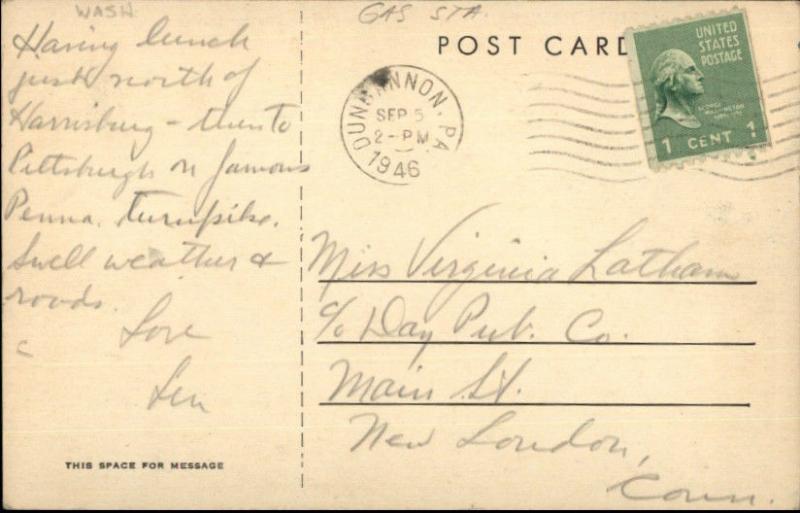 WASH
GAS STA.
POST CARD
Having lunch
just north of
Harrisburg - then to
Pittsburgh on famous
Penna. turnpike.
Swell weather &
roads.
Love
Len
THIS SPACE FOR MESSAGE
DUNCANNON, PA
SEP 5
2-PM
1946
UNITED
STATES
POSTAGE
GEORGE
WASHINGTON
1 CENT 1
Miss Virginia Latham
c/o Day Pub. Co.
Main St.
New London,
Conn.